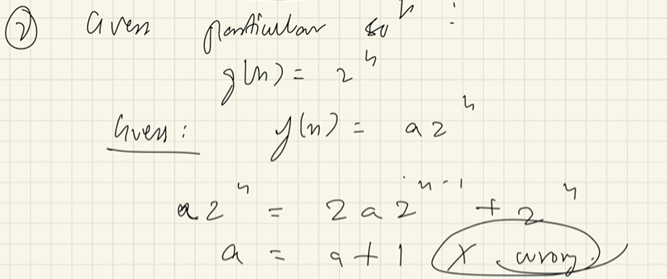 ② Given particular solⁿ :
g(n) = 2ⁿ
Guess : y(n) = a2ⁿ
a2ⁿ = 2a2ⁿ⁻¹ + 2ⁿ
a = a + 1 (X wrong.)